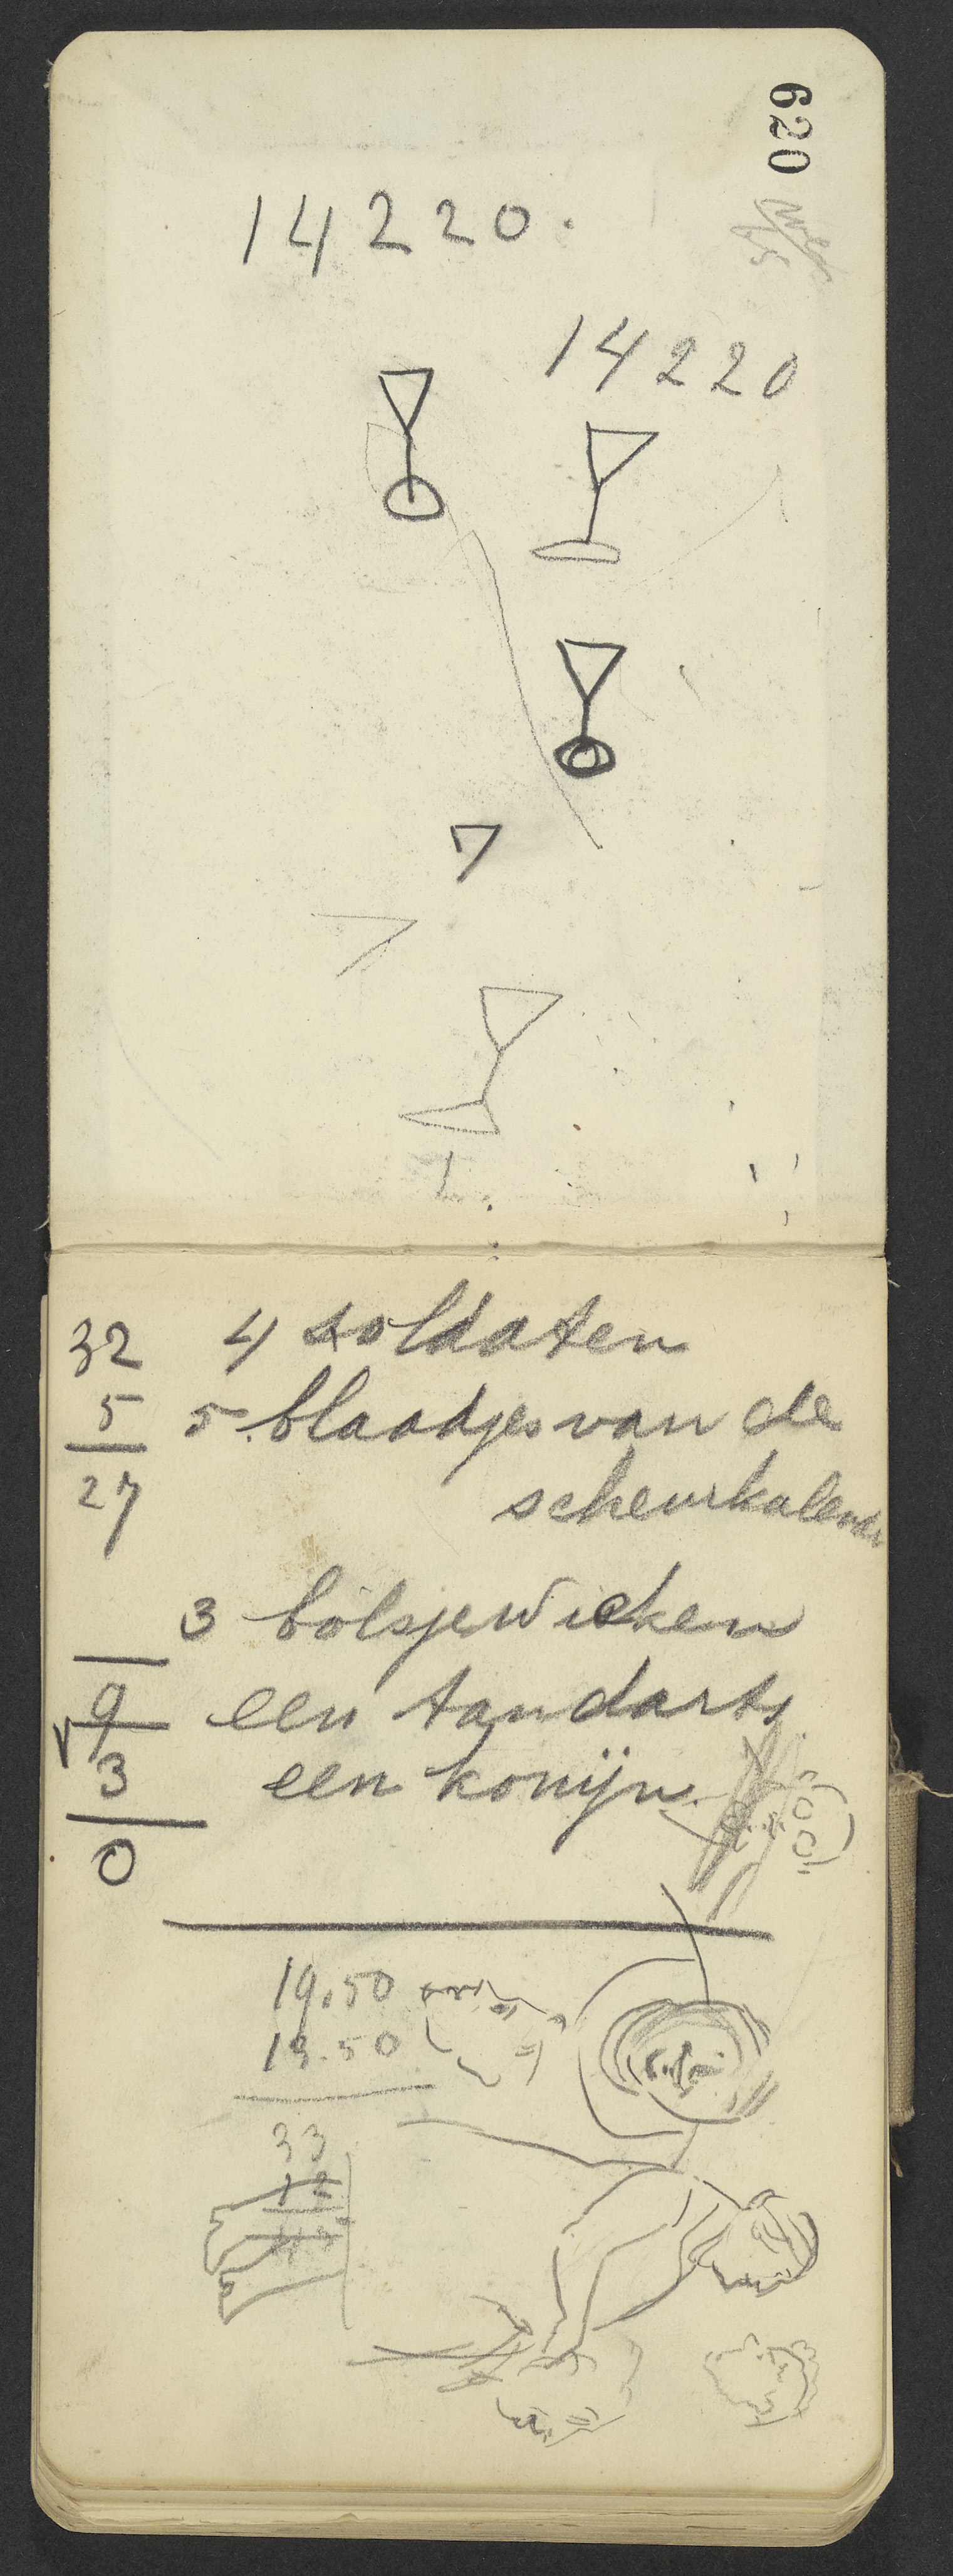 620
14220.
14220
7
32 4 soldaten
5 5 blaadjes van de
27 scheurkalender
3 bolsjewicken
9 een tandarts
3 een konijn
0
19.50
13.50
33
12